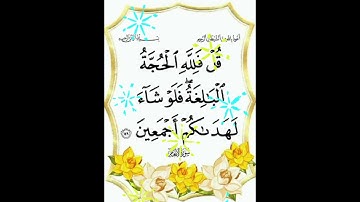 أعوذ بالله من الشيطان الرجيم بسم الله الرحمن الرحيم
قُلْ فَلِلَّهِ ٱلْحُجَّةُ
ٱلْبَٰلِغَةُ ۖ فَلَوْ شَآءَ
لَهَدَىٰكُمْ أَجْمَعِينَ
سورة الأنعام